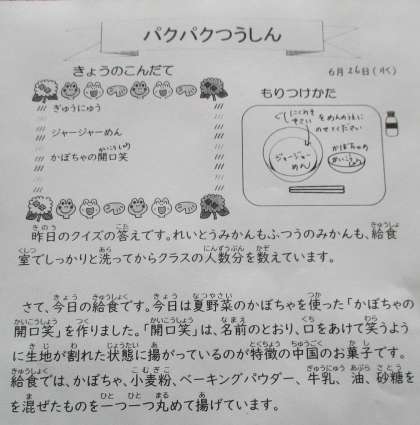 パクパクつうしん
6月26日(水)
きょうのこんだて
ぎゅうにゅう
ジャージャーめん
かぼちゃの開口笑
もりつけかた
にくみそ
やさい
をめんの上に
のせてください
ジャージャー
めん
かぼちゃの
かいこうしょう
昨日のクイズの答えです。れいとうみかんもふつうのみかんも、給食
室でしっかりと洗ってからクラスの人数分を数えています。
さて、今日の給食です。今日は夏野菜のかぼちゃを使った「かぼちゃの
開口笑」を作りました。「開口笑」は、名前のとおり、口をあけて笑うよう
に生地が割れた状態に揚がっているのが特徴の中国のお菓子です。
給食では、かぼちゃ、小麦粉、ベーキングパウダー、牛乳、油、砂糖を
を混ぜたものを一つ一つ丸めて揚げています。